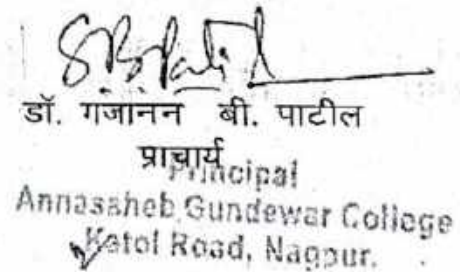 डॉ. गजानन बी. पाटील
प्राचार्य
Principal
Annassheb Gundewar College
Katol Road, Nagpur.